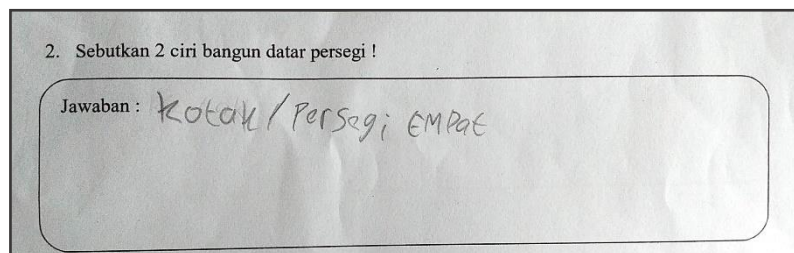 2. Sebutkan 2 ciri bangun datar persegi !
Jawaban : kotak / Persegi EMPat